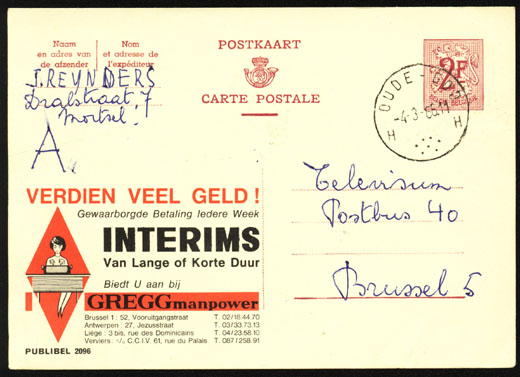 Naam
en adres van
de afzender
Nom
et adresse de
l'expéditeur
POSTKAART
CARTE POSTALE
2F
J. REYNDERS
7
Mortsel.
A
OUDE-GOD
-4-3-66.11
H H
VERDIEN VEEL GELD !
Gewaarborgde Betaling Iedere Week
INTERIMS
Van Lange of Korte Duur
Biedt U aan bij
GREGG manpower
Brussel 1 : 52, Vooruitgangstraat T. 02/18 44 70
Antwerpen : 27, Jezusstraat T. 03/33.73.13
Liège : 3 bis, rue des Dominicains T. 04/23.58.10
Verviers : c/o C.C.I.V. 61, rue du Palais T. 087/258.91
PUBLIBEL 2096
Televisum
Postbus 40
Brussel 5